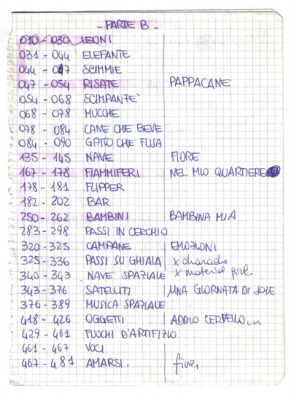 - PARTE B -
010 - 030 LEONI
031 - 044 ELEFANTE
044 - 047 SCIMMIE
047 - 054 RISATE PAPPACANE
054 - 068 SCIMPANTE'
068 - 078 MUCCHE
078 - 084 CANE CHE BEVE
084 - 090 GATTO CHE FUSA
135 - 145 NAVE FIORE
167 - 178 FIAMMIFERI NEL MIO QUARTIERE
178 - 181 FLIPPER
182 - 202 BAR
250 - 262 BAMBINI BAMBINA MIA
283 - 298 PASSI IN CERCHIO
320 - 325 CAMPANE EMOZIONI
325 - 336 PASSI SU GHIAIA x
340 - 343 NAVE SPAZIALE x
343 - 376 SATELLITI UNA GIORNATA DI SOLE
376 - 389 MUSICA SPAZIALE
418 - 426 OGGETTI ADDIO CERVELLO...
429 - 461 FUOCHI D'ARTIFIZIO
461 - 467 VOCI
467 - 481 AMARSI. fine.